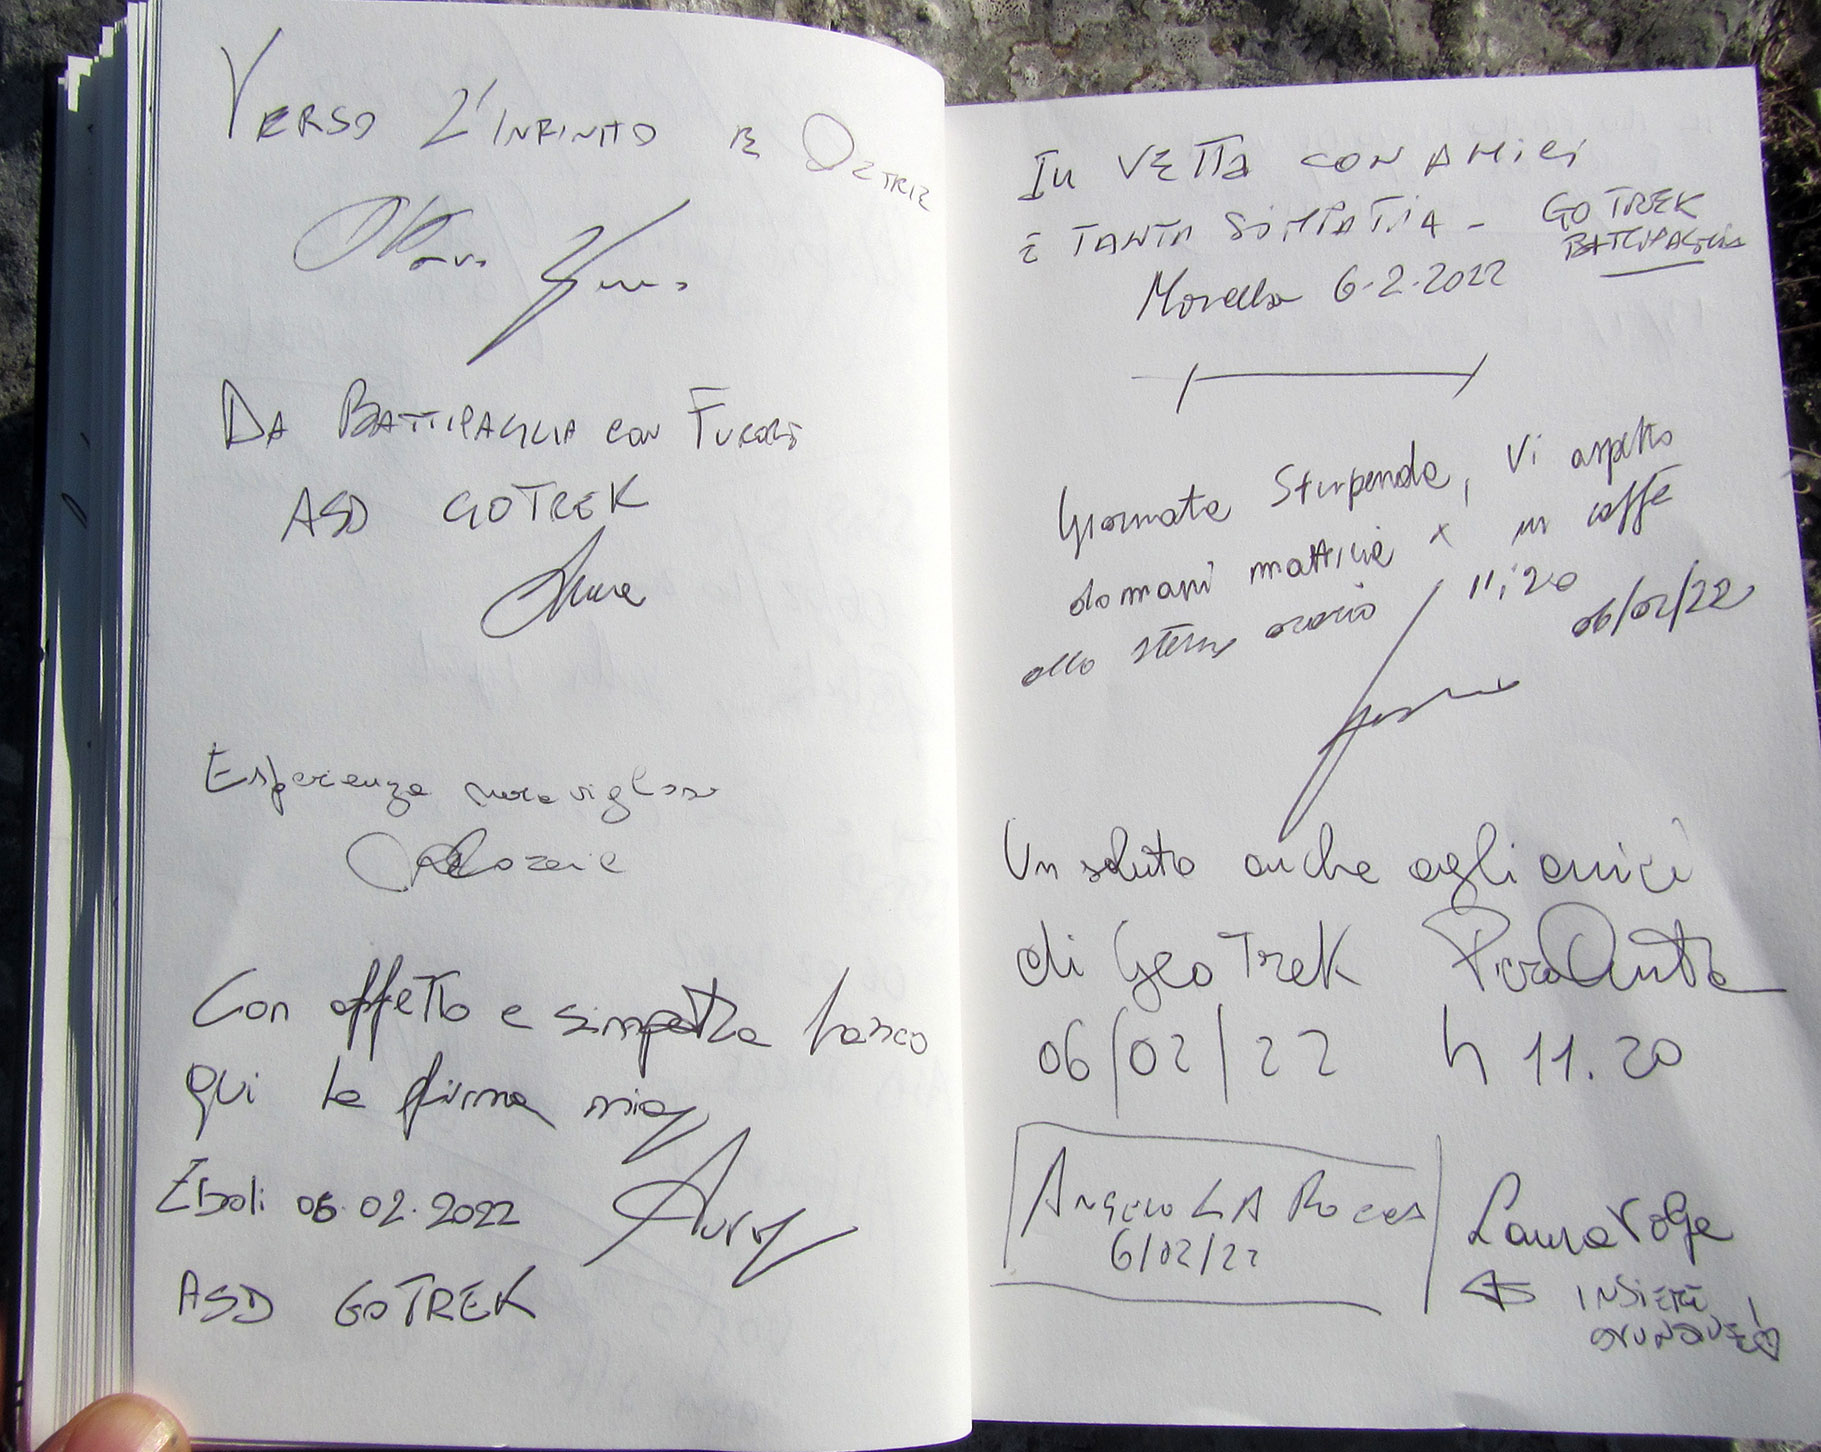 VERSO L'INFINITO E OLTRE
DA BATTIPAGLIA CON FURORE
ASD GOTREK
Esperienza meravigliosa
Con affetto e simpatia lascio
qui la firma mia
Eboli 06.02.2022
ASD GOTREK
IN VETTA CON AMICI
E TANTA SIMPATIA - GO TREK
BATTIPAGLIA
Morella 6-2-2022
Giornata Stupenda, Vi aspetto
domani mattina x un caffè
allo stesso orario 11:20
06/02/22
Un saluto anche agli amici
di GeoTrek
06/02/22 h 11.20
ANGELO LA ROCCA
6/02/22
Laura
INSIEME
OVUNQUE!